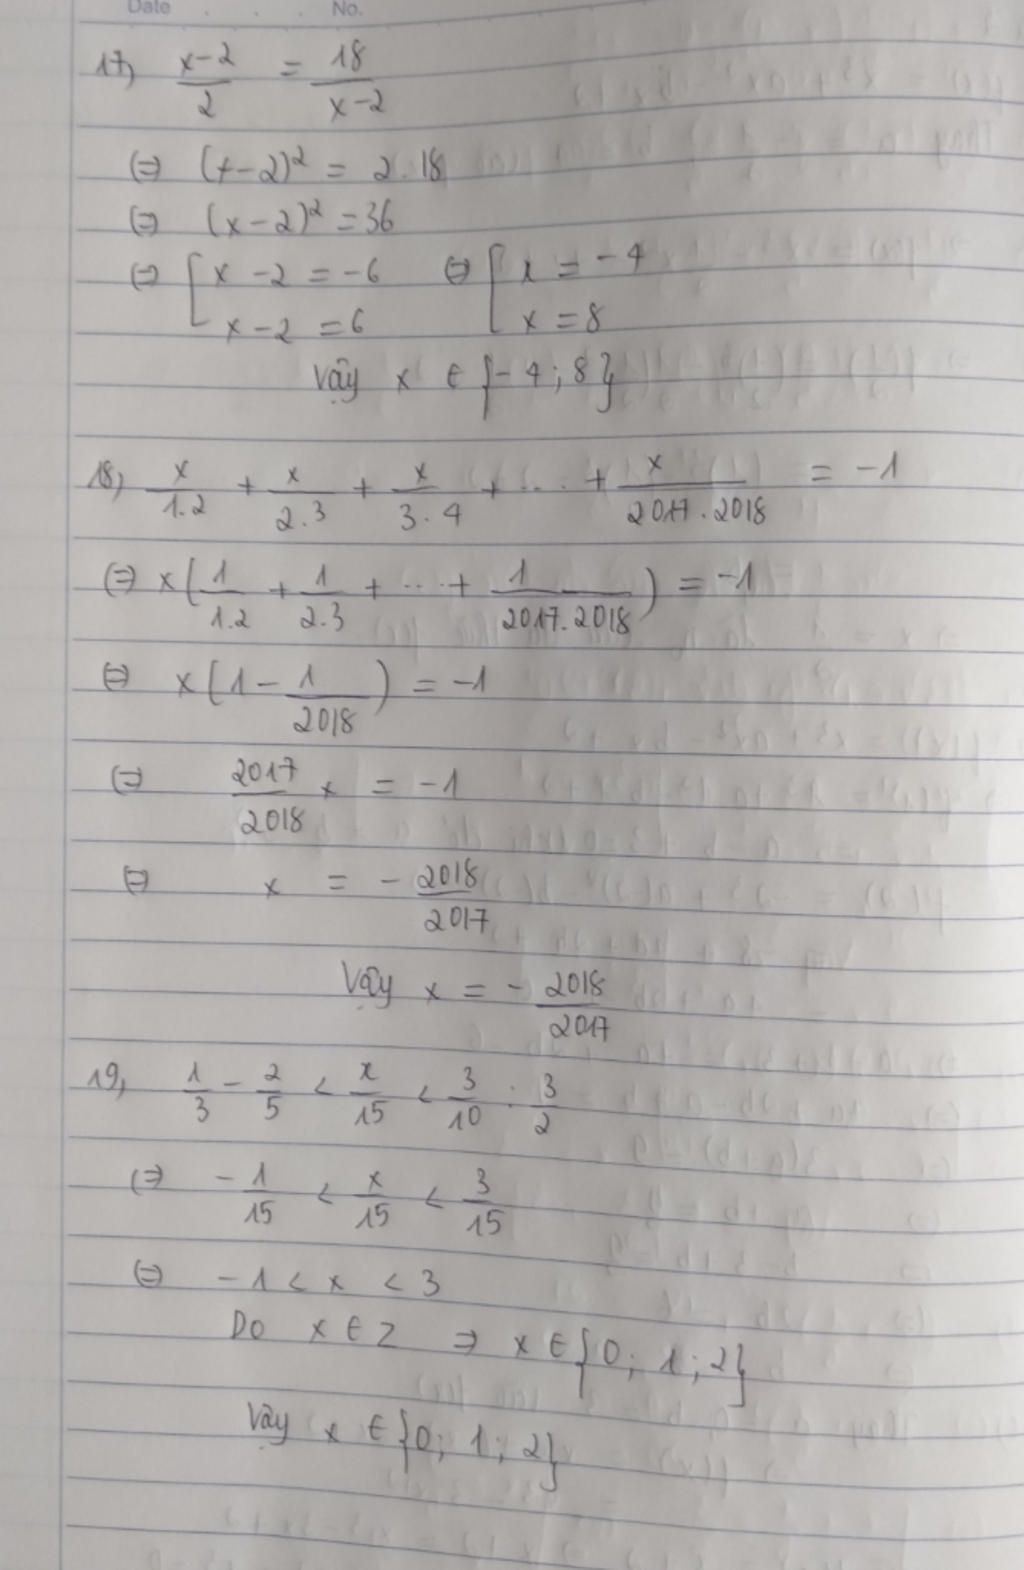 Date . . . No.
17, (x-2)/2 = 18/(x-2)
(=) (x-2)² = 2.18
(=) (x-2)² = 36
(=) [ x - 2 = -6 (=) [ x = -4
x - 2 = 6 x = 8
Vậy x ∈ {-4; 8}
18, x/1.2 + x/2.3 + x/3.4 + ... + x/2017.2018 = -1
(=) x(1/1.2 + 1/2.3 + ... + 1/2017.2018) = -1
(=) x(1 - 1/2018) = -1
(=) 2017/2018 x = -1
(=) x = - 2018/2017
Vậy x = - 2018/2017
19, 1/3 - 2/5 < x/15 < 3/10 : 3/2
(=) -1/15 < x/15 < 3/15
(=) -1 < x < 3
Do x ∈ Z => x ∈ {0; 1; 2}
Vậy x ∈ {0; 1; 2}